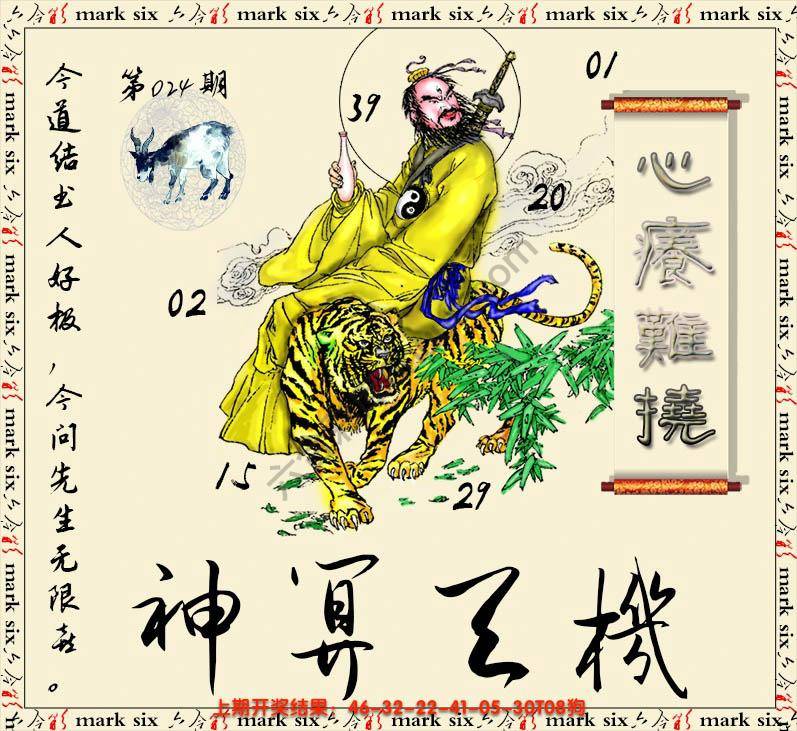 mark six
第024期
01
39
20
02
15
29
今道结出人好极，今问先生无限喜。
心癢難撓
神算天機
上期开奖结果：46-32-22-41-05-30T08狗